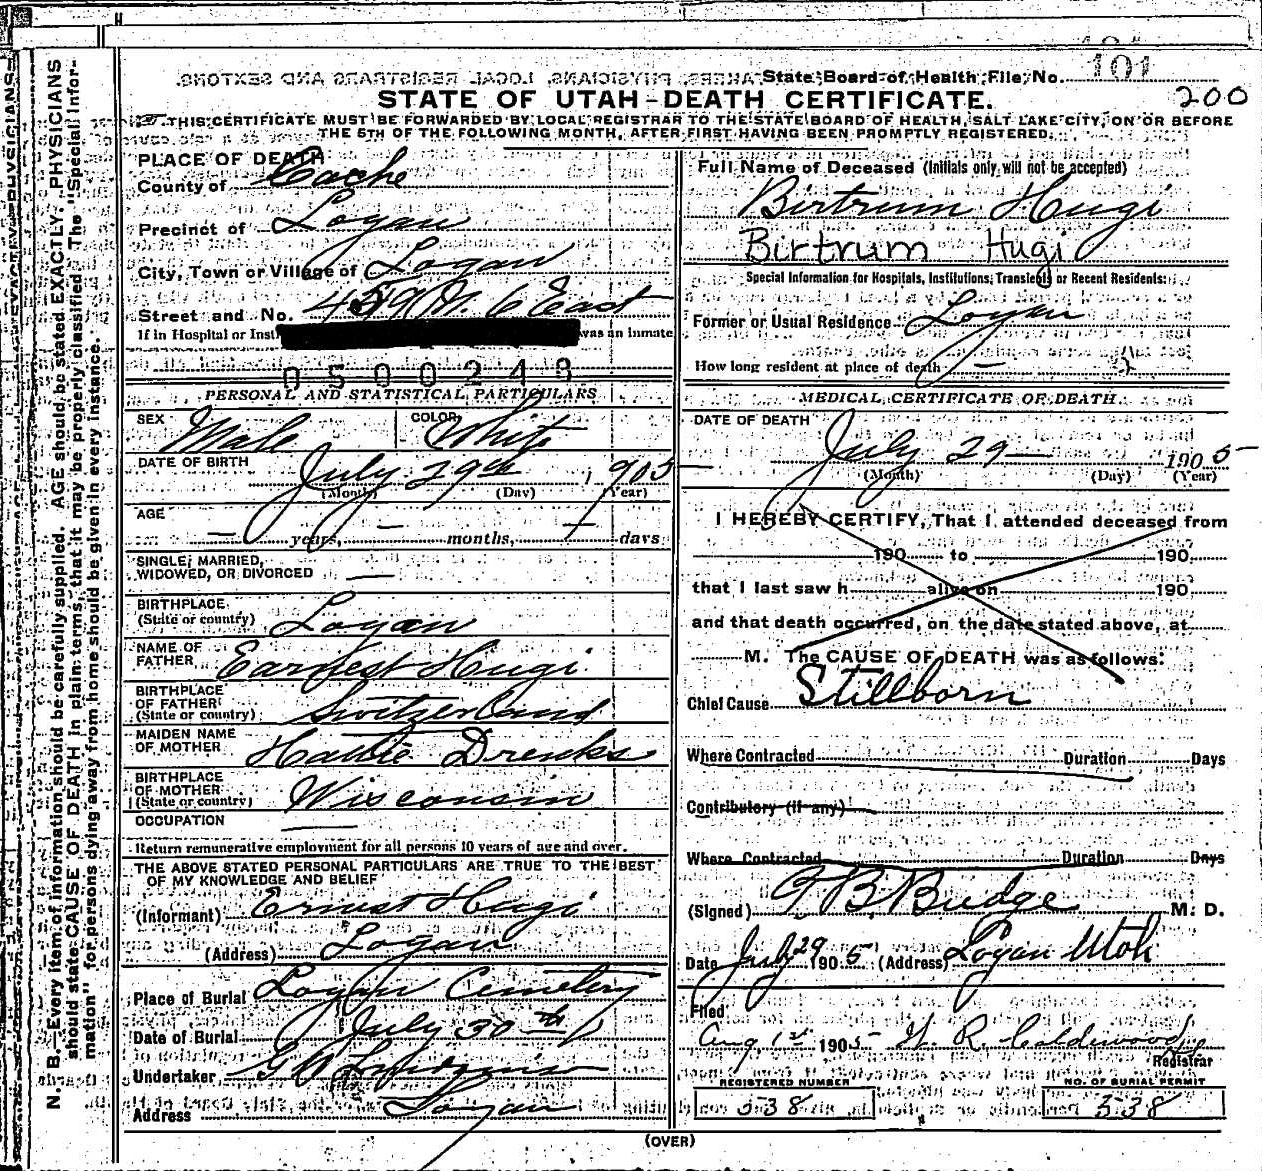 State Board of Health File No. 101
200
STATE OF UTAH-DEATH CERTIFICATE.
THIS CERTIFICATE MUST BE FORWARDED BY LOCAL REGISTRAR TO THE STATE BOARD OF HEALTH, SALT LAKE CITY, ON OR BEFORE
THE 5TH OF THE FOLLOWING MONTH, AFTER FIRST HAVING BEEN PROMPTLY REGISTERED.
N. B.—Every item of information should be carefully supplied. AGE should be stated EXACTLY. PHYSICIANS
should state CAUSE OF DEATH in plain terms, that it may be properly classified. The "Special Infor-
mation" for persons dying away from home should be given in every instance.
PLACE OF DEATH
County of Cache
Precinct of Logan
City, Town or Village of Logan
Street and No. 459 N. 6 East
If in Hospital or Insti was an inmate
0500248
PERSONAL AND STATISTICAL PARTICULARS
SEX Male COLOR White
DATE OF BIRTH July 29th, 1905
(Month) (Day) (Year)
AGE
— years, — months, — days
SINGLE, MARRIED,
WIDOWED, OR DIVORCED —
BIRTHPLACE
(State or country) Logan
NAME OF
FATHER Earnest Hugi
BIRTHPLACE
OF FATHER
(State or country) Switzerland
MAIDEN NAME
OF MOTHER Hattie Drenks
BIRTHPLACE
OF MOTHER
(State or country) Wisconsin
OCCUPATION —
Return remunerative employment for all persons 10 years of age and over.
THE ABOVE STATED PERSONAL PARTICULARS ARE TRUE TO THE BEST
OF MY KNOWLEDGE AND BELIEF
(Informant) Ernest Hugi
(Address) Logan
Place of Burial Logan Cemetery
Date of Burial July 30th
Undertaker G W
Address Logan
Full Name of Deceased (Initials only will not be accepted)
Birtrum Hugi
Birtrum Hugi
Special Information for Hospitals, Institutions, Transients or Recent Residents:
Former or Usual Residence Logan
How long resident at place of death —
MEDICAL CERTIFICATE OF DEATH
DATE OF DEATH
July 29— 1905
(Month) (Day) (Year)
I HEREBY CERTIFY, That I attended deceased from
190 to 190
that I last saw h alive on 190
and that death occurred, on the date stated above, at
M. The CAUSE OF DEATH was as follows:
Chief Cause Stillborn
Where Contracted Duration Days
Contributory (if any)
Where Contracted Duration Days
(Signed) B. Budge M. D.
Date July 29 1905 (Address) Logan Utah
Filed
Aug 1st 1905 R. Calderwood
Registrar
REGISTERED NUMBER NO. OF BURIAL PERMIT
538 538
(OVER)